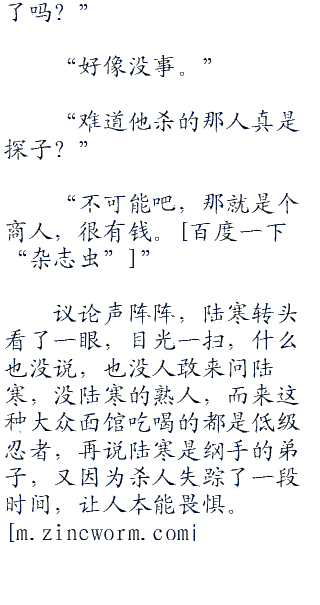 了吗？”
“好像没事。”
“难道他杀的那人真是
探子？”
“不可能吧，那就是个
商人，很有钱。[百度一下
“杂志虫”]”
议论声阵阵，陆寒转头
看了一眼，目光一扫，什么
也没说，也没人敢来问陆
寒，没陆寒的熟人，而来这
种大众面馆吃喝的都是低级
忍者，再说陆寒是纲手的弟
子，又因为杀人失踪了一段
时间，让人本能畏惧。
[m.zincworm.com]